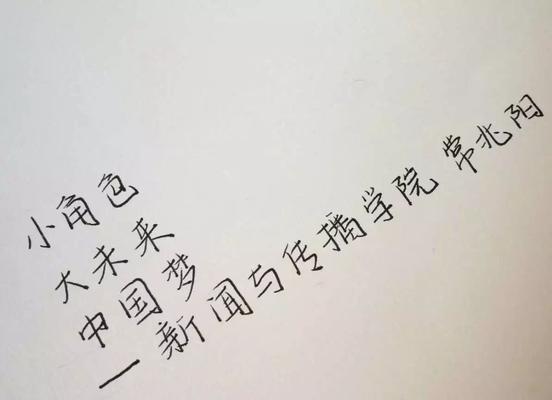 小角色
大未来
中国梦
—新闻与传播学院 常兆阳